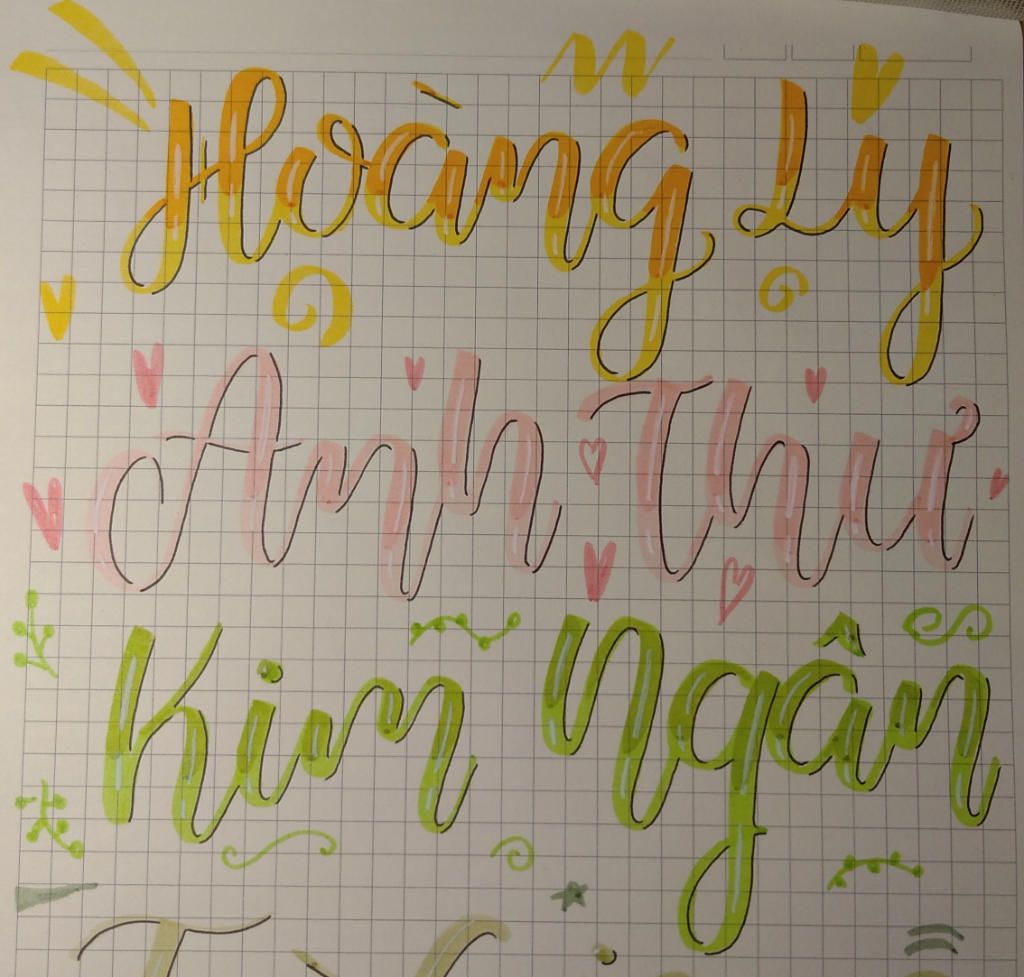 Hoàng Ly
Anh Thư
Kim Ngân